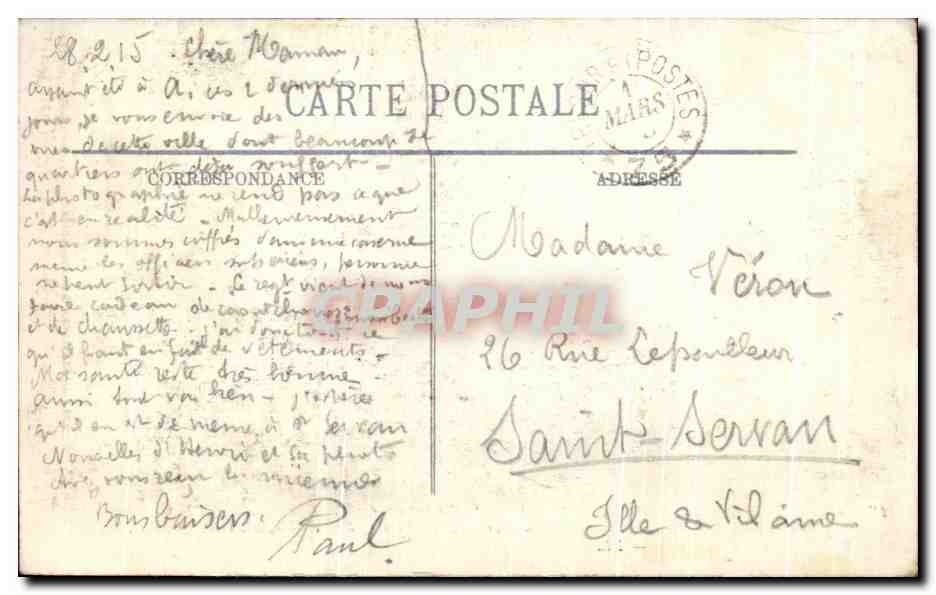 28.2.15. Chère Maman,
ayant été à A, ces 2 derniers
jours, je vous envoie des
vues de cette ville dont beaucoup de
quartiers ont déjà souffert -
La photographie ne rend pas ce que
c'est en réalité - Malheureusement
nous sommes coffrés dans une caserne
même les officiers subalternes, personne
ne peut sortir - Le regt vient de nous
faire cadeau de
et de chaussettes - j'ai donc tout ce
qu'il faut en fait de vêtements -
Ma santé reste très bonne -
aussi tout va bien - j'espère
qu'il en est de même à St Servan
Nouvelles d'Henri et
vous reçu les miennes
Bons baisers.
Paul
CARTE POSTALE
CORRESPONDANCE
ADRESSE
POSTES
1
MARS
Madame
Véron
26 Rue Lepailleur
Saint-Servan
Ille & Vilaine
CPAPHIL